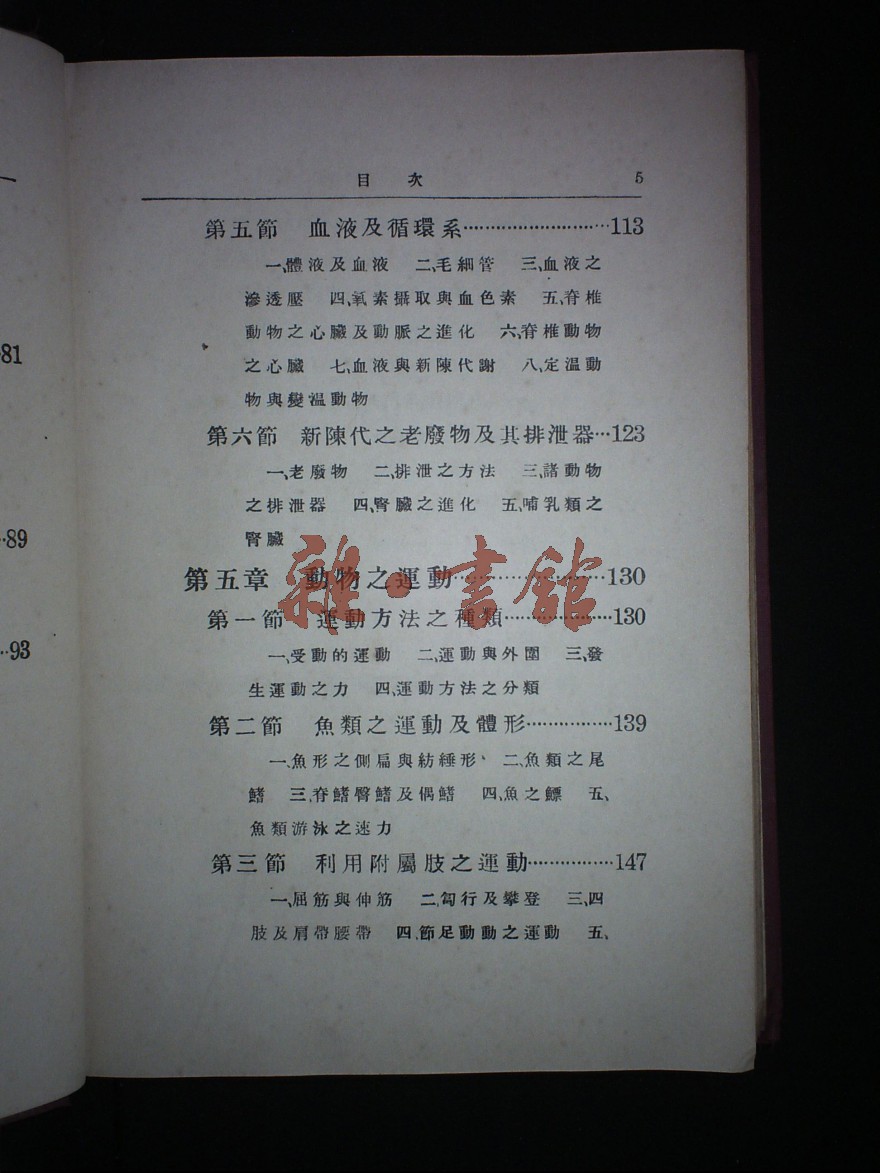 ·81
··89
··93
目 次 5
第五節 血液及循環系……………………113
一、體液及血液 二、毛細管 三、血液之
滲透壓 四、氧素攝取與血色素 五、脊椎
動物之心臟及動脈之進化 六、脊椎動物
之心臟 七、血液與新陳代謝 八、定溫動
物與變溫動物
第六節 新陳代之老廢物及其排泄器…123
一、老廢物 二、排泄之方法 三、諸動物
之排泄器 四、腎臟之進化 五、哺乳類之
腎臟
第五章 動物之運動……………………130
第一節 運動方法之種類…………………130
一、受動的運動 二、運動與外圍 三、發
生運動之力 四、運動方法之分類
第二節 魚類之運動及體形………………139
一、魚形之側扁與紡綞形 二、魚類之尾
鰭 三、脊鰭臀鰭及偶鰭 四、魚之鰾 五、
魚類游泳之速力
第三節 利用附屬肢之運動………………147
一、屈筋與伸筋 二、匐行及攀登 三、四
肢及肩帶腰帶 四、節足動動之運動 五、
雜·書館